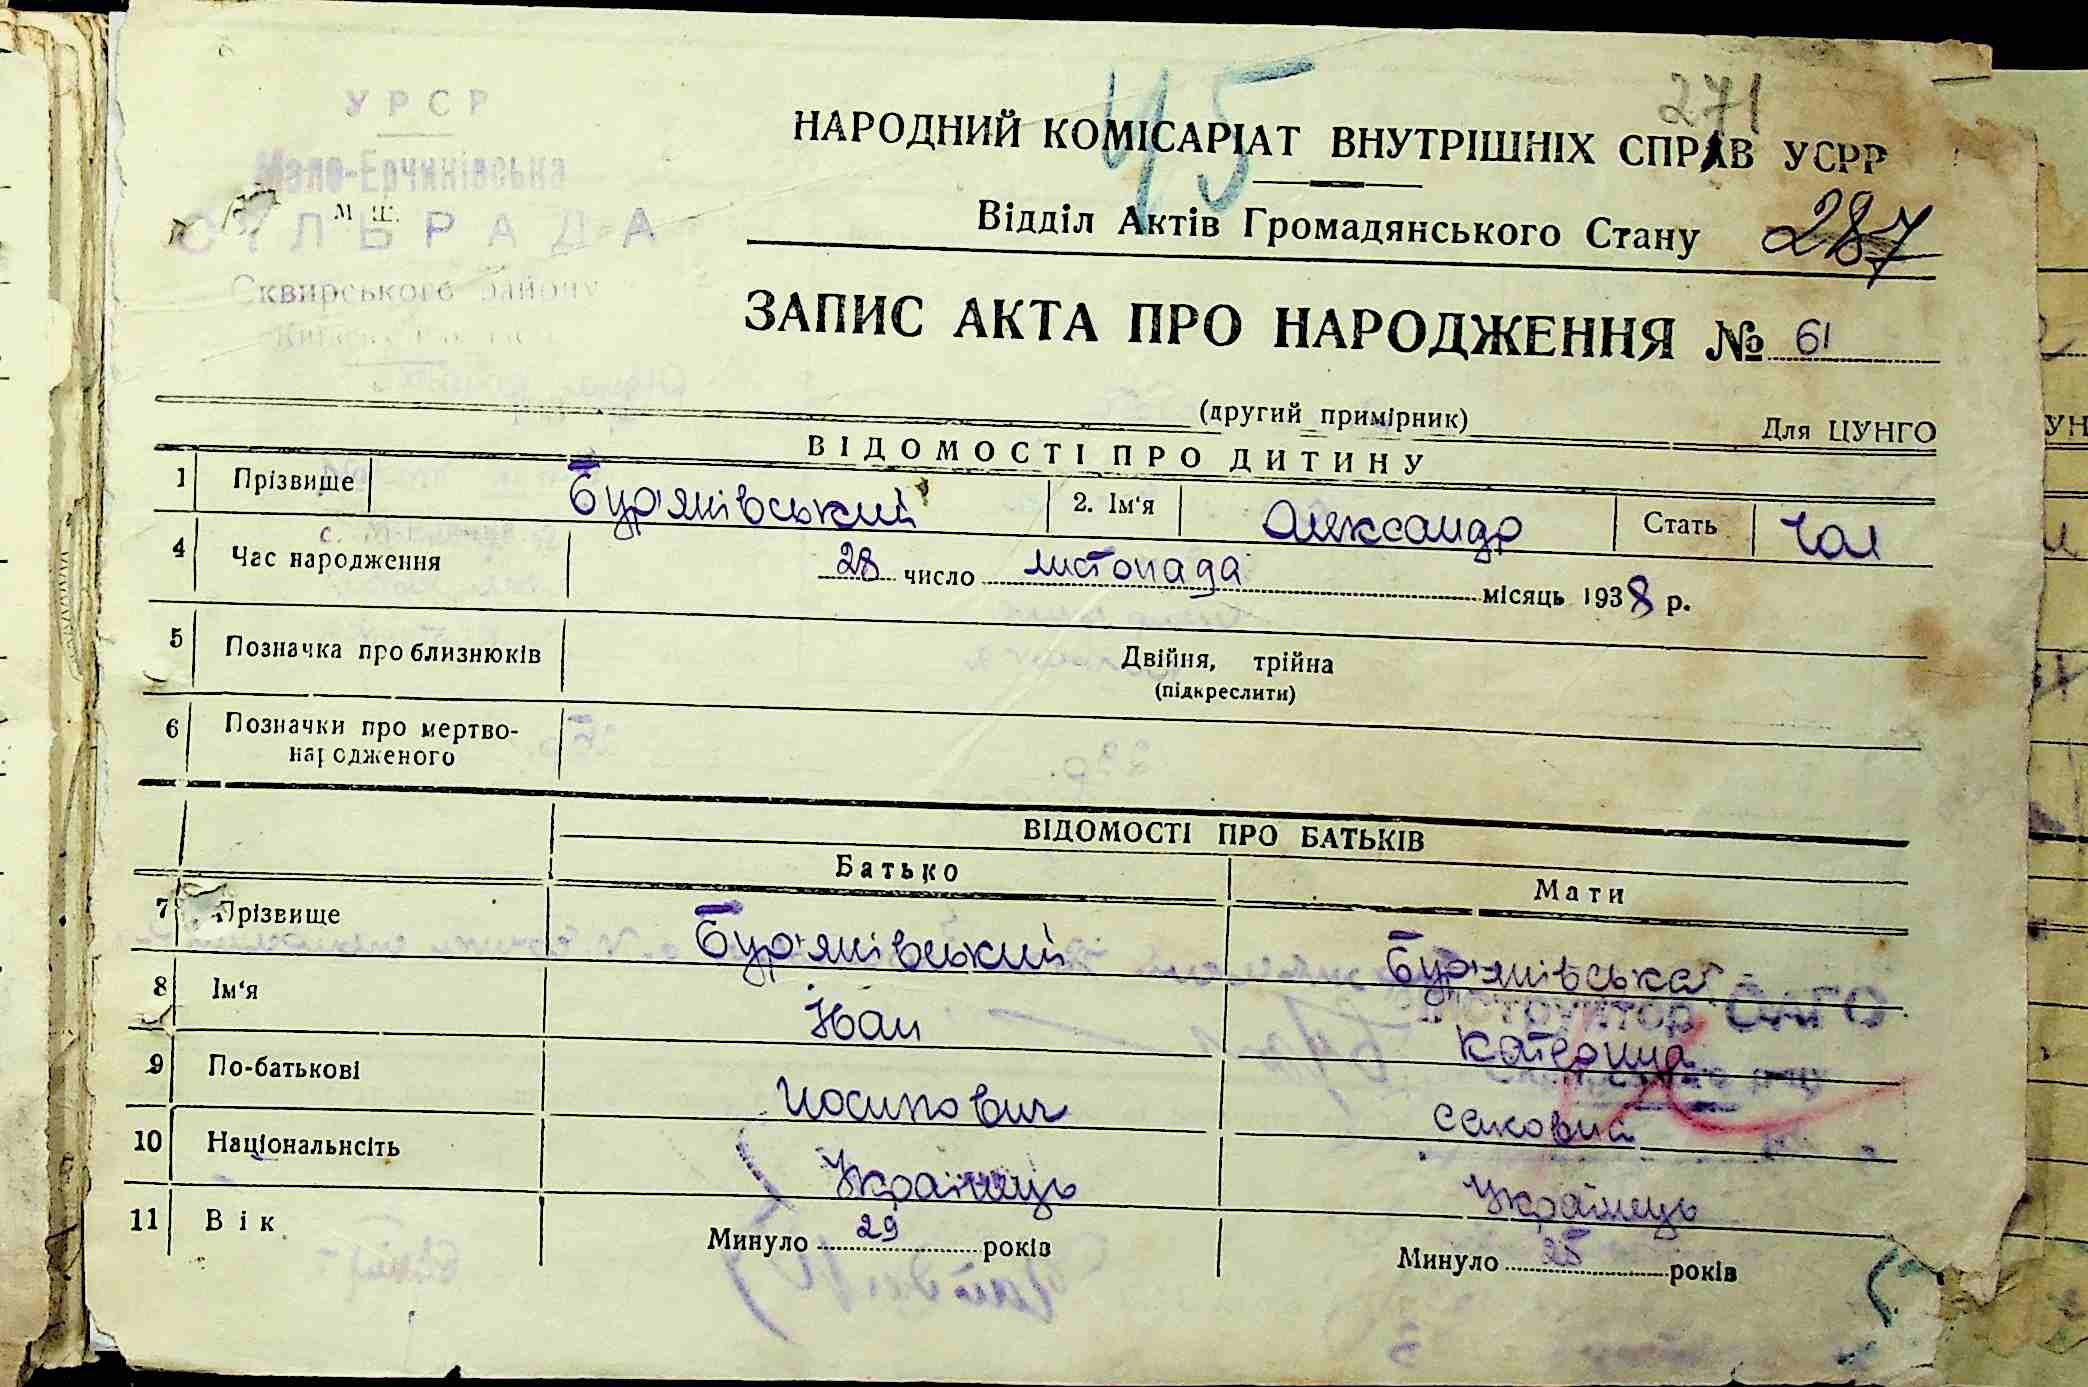 45
271
УРСР
Мало-Ерчиківська
м. ш.
СІЛЬРАДА
Сквирського району
НАРОДНИЙ КОМІСАРІАТ ВНУТРІШНІХ СПРАВ УСРР
Відділ Актів Громадянського Стану 287
ЗАПИС АКТА ПРО НАРОДЖЕННЯ № 61
(другий примірник) Для ЦУНГО
ВІДОМОСТІ ПРО ДИТИНУ
1 Прізвище Бур'янівський 2. Ім'я Олександр Стать Чол
4 Час народження 28 число листопада місяць 1938 р.
5 Позначка про близнюків Двійня, трійна
(підкреслити)
6 Позначки про мертво-
народженого
ВІДОМОСТІ ПРО БАТЬКІВ
Батько Мати
7 Прізвище Бур'янівський Бур'янівська
8 Ім'я Іван Катерина
9 По-батькові Иосипович Саковна
10 Національнсіть Українець Українець
11 Вік Минуло 29 років Минуло 25 років